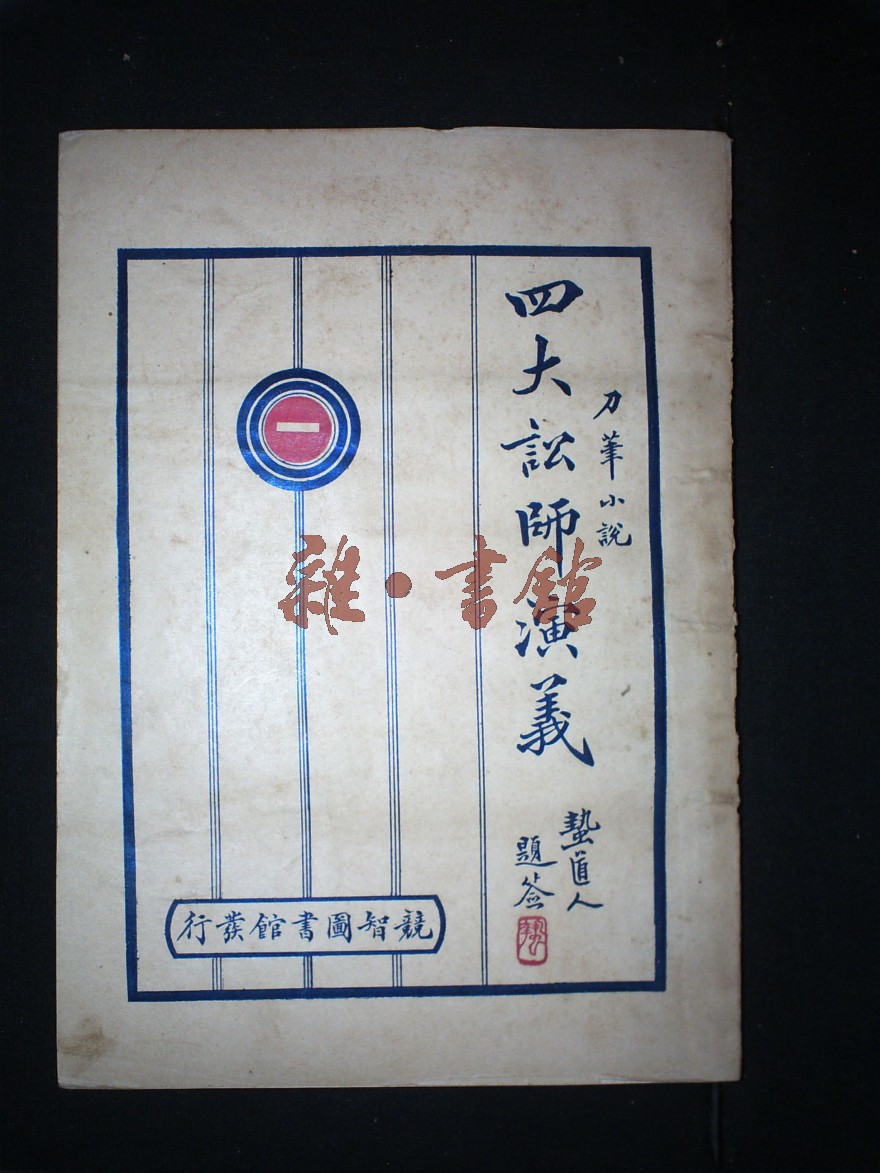 刀筆小說
四大訟師演義
蟄道人
題签
一
競智圖書館發行
雜·書館